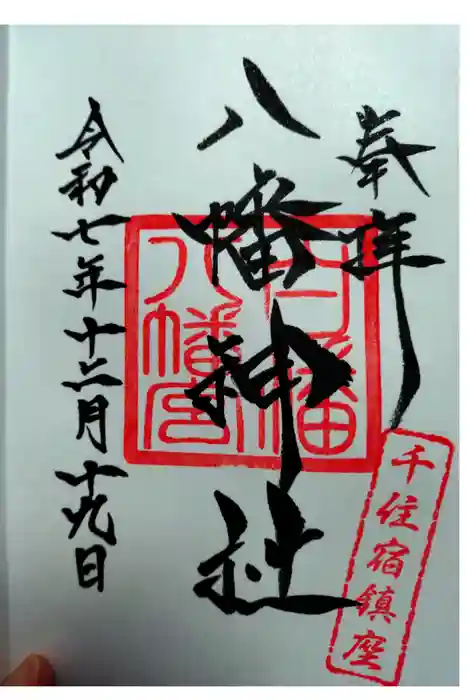 奉拝
八幡神社
八幡宮
千住宿鎮座
令和七年十二月十九日